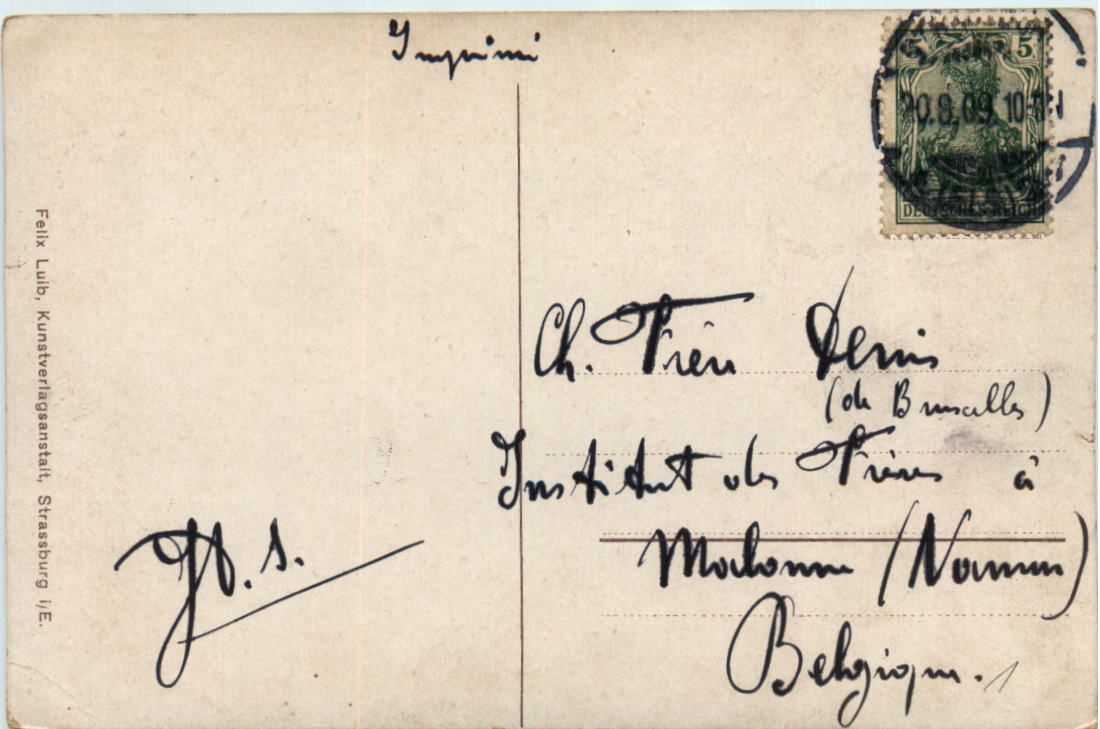 Imprimé
5 5
20.8.09. 10-11
DEUTSCHES REICH
Ch. Frère Denis
(de Bruxelles)
Institut des Frères à
Malonne (Namur)
Belgique.
Jb. s.
Felix Luib, Kunstverlagsanstalt, Strassburg i/E.